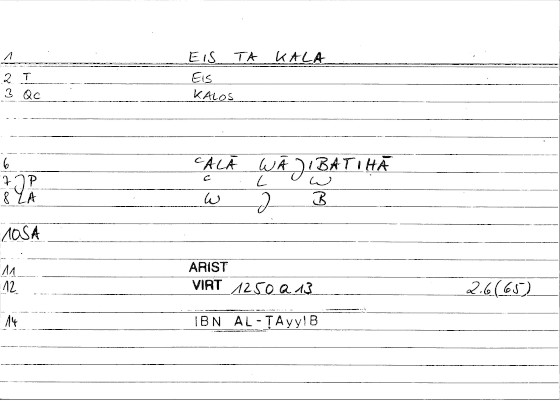 1 EIS TA KALA
2 T EIS
3 QC KALOS
6 ᶜALĀ WĀJIBATIHĀ
7 JP ᶜ L W
8 LA W J B
10SA
11 ARIST
12 VIRT 1250a13 2.6(65)
14 IBN AL-ṬAyyIB